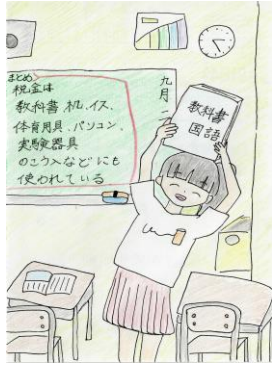 まとめ
税金は
教科書、机、イス、
体育用具、パソコン、
実験器具
のこう入などにも
使われている
九月二
教科書
国語